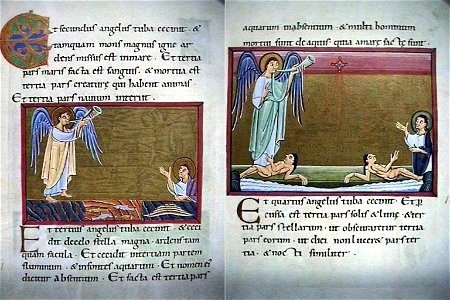 Et secundus angelus tuba cecinit. &
tamquam mons magnus igne ar
dens missus est in mare. Et tertia
pars maris facta est sanguis. & mortua est
tertia pars creaturę quę habent animas.
Et tertia pars navium interiit.
Et tertius angelus tuba cecinit. & ceci
dit de cęlo stella magna. ardens tam
quam facula. Et cecidit in tertiam partem
fluminum. & in fontes aquarum. Et nomen ei
dicitur absentium. Et facta est tertia pars
aquarum in absentium. & multi hominum
mortui sunt de aquis quia amarę factę sunt.
Et quartus angelus tuba cecinit. Et p
cussa est tertia pars solis & lunę. & ter
tia pars stellarum. ut obscuraretur tertia
pars eorum. ut diei non luceret pars ter
tia. & noctis similiter.